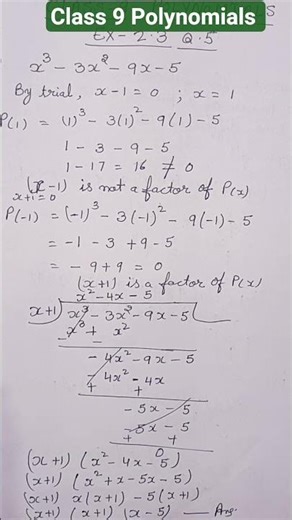 Class 9 Polynomials
S
EX-2.3 Q.5
x³ - 3x² - 9x - 5
By trial, x-1=0 ; x=1
P(1) = (1)³ - 3(1)² - 9(1) - 5
1 - 3 - 9 - 5
1 - 17 = 16 ≠ 0
(x-1) is not a factor of P(x)
x+1=0
P(-1) = (-1)³ - 3(-1)² - 9(-1) - 5
= -1 - 3 + 9 - 5
= -9 + 9 = 0
(x+1) is a factor of P(x)
x² - 4x - 5
x+1) x³ - 3x² - 9x - 5
x³ + x²
- -
- 4x² - 9x - 5
- 4x² - 4x
+ +
- 5x - 5
- 5x - 5
+ +
0
(x+1) (x² - 4x - 5)
(x+1) (x² + x - 5x - 5)
(x+1) x(x+1) - 5(x+1)
(x+1) (x+1) (x-5) — Ans